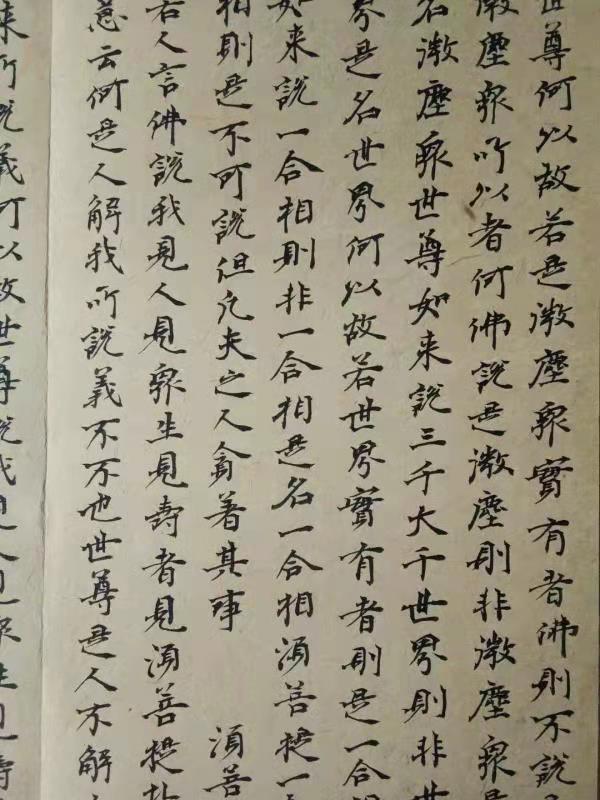 世尊何以故若是微塵衆實有者佛則不說是
微塵衆所以者何佛說是微塵則非微塵衆是
名微塵衆世尊如来說三千大千世界則非世
界是名世界何以故若世界實有者則是一合
如来說一合相則非一合相是名一合相湏菩提一
相則是不可說但凡夫之人貪著其事 湏菩
若人言佛說我見人見衆生見壽者見湏菩提扵
意云何是人解我所說義不不也世尊是人不解
来所說義何以故世尊說我見人見衆生見壽